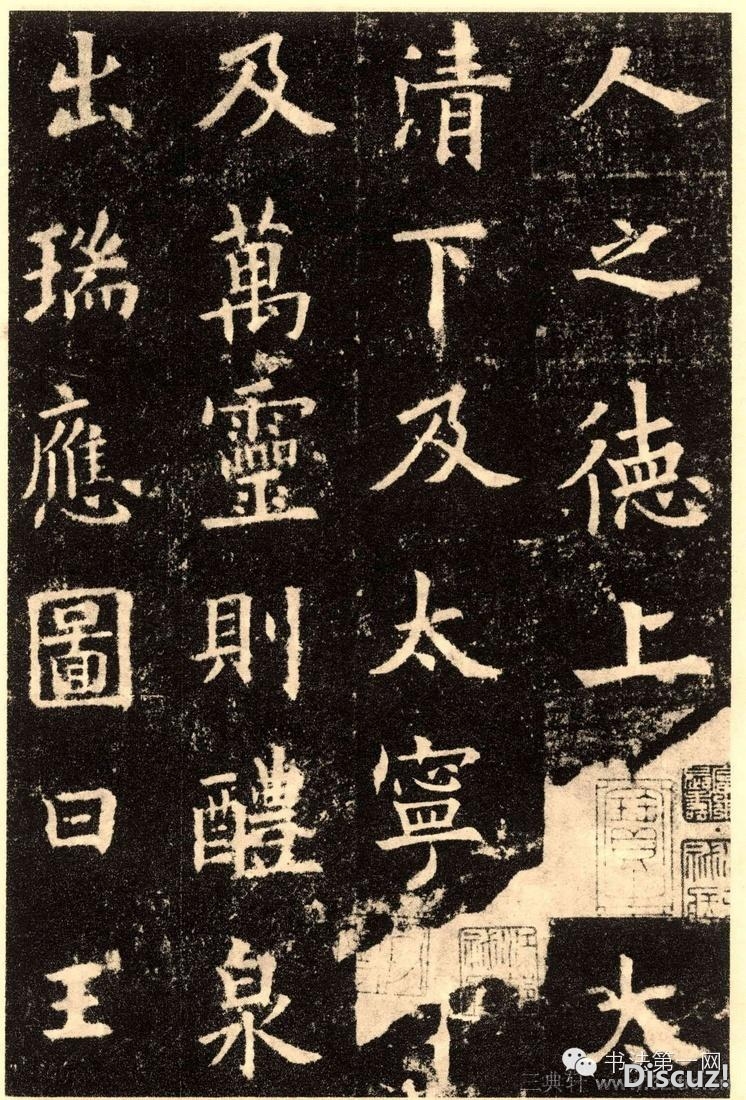 人之德上太
清下及太寧
及萬靈則醴泉
出瑞應圖曰王
书法第一网
三典轩
Discuz!